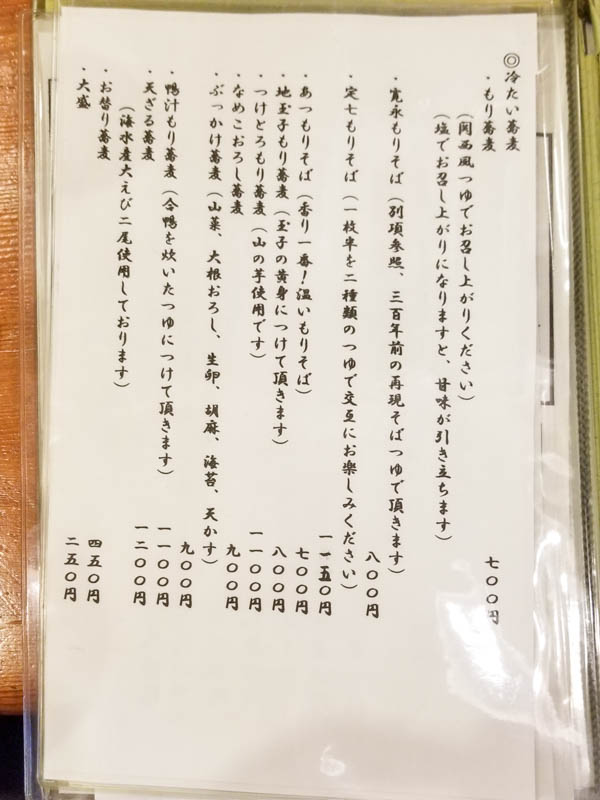 ◎冷たい蕎麦
・もり蕎麦　七〇〇円
（関西風つゆでお召し上がりください）
（塩でお召し上がりになりますと、甘味が引き立ちます）
・寛永もりそば（別項参照、三百年前の再現そばつゆで頂きます）　八〇〇円
・定七もりそば（一枚半を二種類のつゆで交互にお楽しみください）　一一五〇円
・あつもりそば（香り一番！温いもりそば）　七〇〇円
・地玉子もり蕎麦（玉子の黄身につけて頂きます）　八〇〇円
・つけどろもり蕎麦（山の芋使用です）　一一〇〇円
・なめこおろし蕎麦　九〇〇円
・ぶっかけ蕎麦（山菜、大根おろし、生卵、胡麻、海苔、天かす）　九〇〇円
・鴨汁もり蕎麦（合鴨を炊いたつゆにつけて頂きます）　一一〇〇円
・天ざる蕎麦　一二〇〇円
（海水産大えび二尾使用しております）
・お替り蕎麦　四五〇円
・大盛　二五〇円